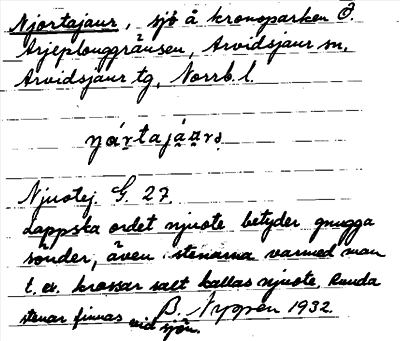 Njortajaur, sjö å kronoparken Ö.
Arjeplouggränsen, Arvidsjaur sn,
Arvidsjaur tg, Norrb. l.
ŋártajáu̯rə
Njuotej. G. 27.
Lappska ordet njuote betyder gnugga
sönder, även stenarna varmed man
t. ex. krossar salt kallas njuote. Runda
stenar finnas vid sjön.
B. Nygren 1932.